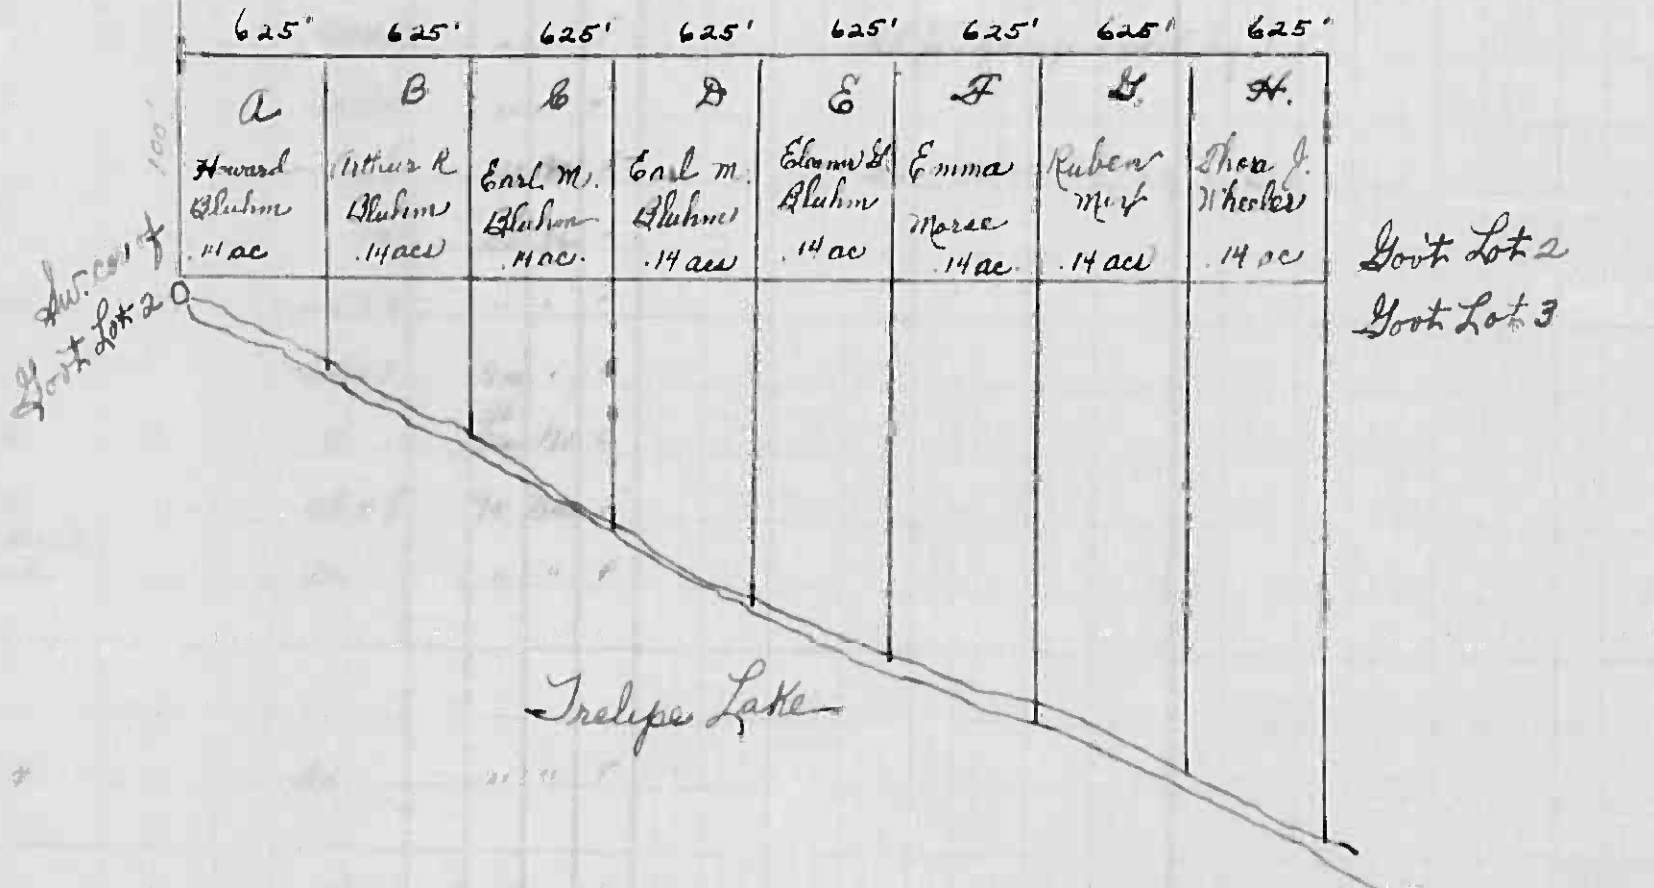 625' 625' 625' 625' 625' 625' 625' 625'
A B C D E F G. H.
100'
Howard
Bluhm
.14 ac
Arthur R
Bluhm
.14 acs
Earl M.
Bluhm
.14 ac.
Earl M.
Bluhm
.14 acs
Bluhm
.14 ac
Emma
Morse
.14 ac.
Ruben
.14 acs
Thora J.
Wheeler
.14 ac
Sw. cor of
Gov't Lot 2
Gov't Lot 2
Gov't Lot 3
Trelipe Lake